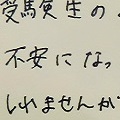 受験生の
不安になっ
しれませんが